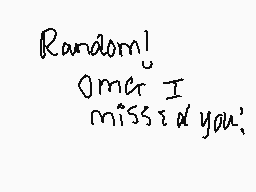 Random!
OMG I
missed you!